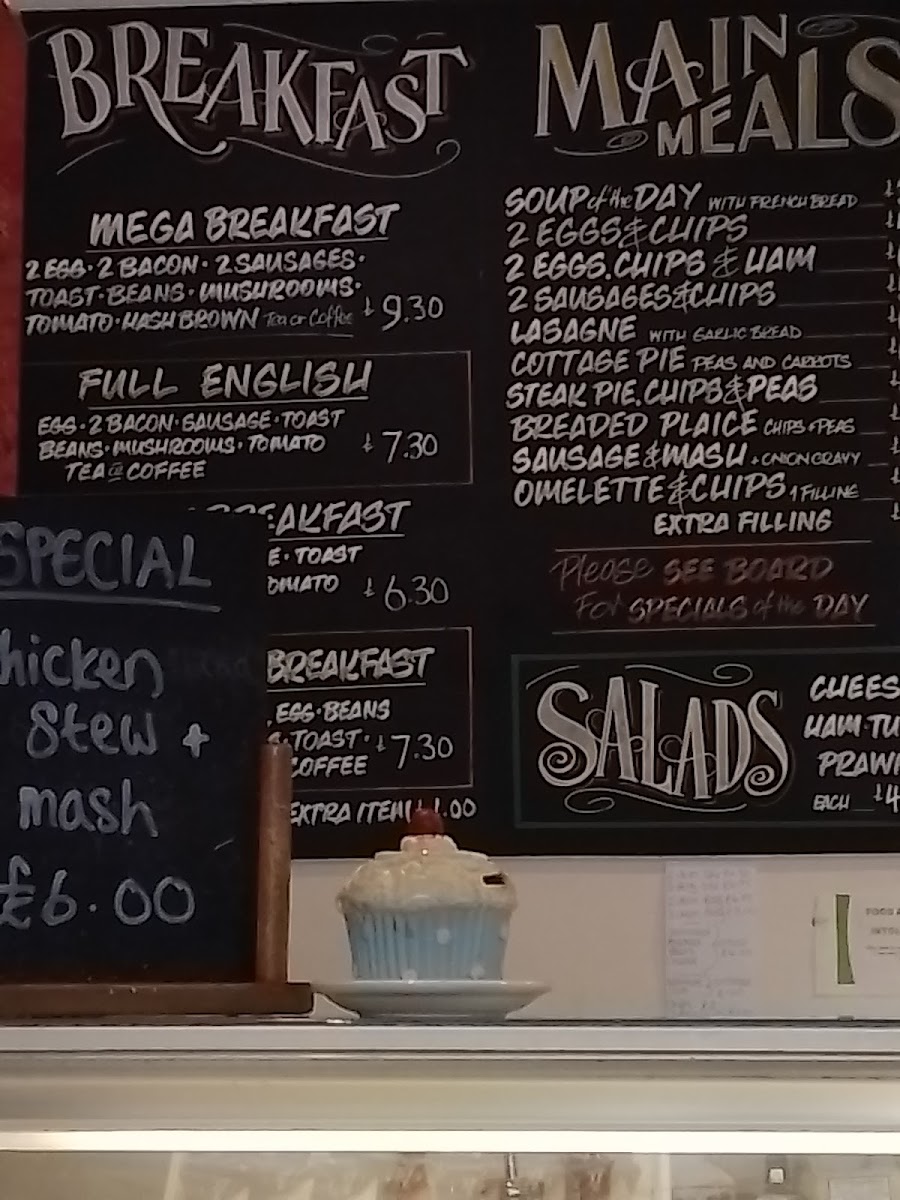 BREAKFAST
MEGA BREAKFAST
2 EGG · 2 BACON · 2 SAUSAGES ·
TOAST · BEANS · MUSHROOMS ·
TOMATO · HASH BROWN Tea or Coffee £9.30
FULL ENGLISH
EGG · 2 BACON · SAUSAGE · TOAST
BEANS · MUSHROOMS · TOMATO £7.30
TEA or COFFEE
BREAKFAST
E · TOAST
OMATO £6.30
BREAKFAST
, EGG · BEANS
TOAST · £7.30
COFFEE
EXTRA ITEM £1.00
SPECIAL
hicken
Stew +
mash
£6.00
MAIN
MEALS
SOUP of the DAY WITH FRENCH BREAD
2 EGGS & CHIPS
2 EGGS, CHIPS & HAM
2 SAUSAGES & CHIPS
LASAGNE WITH GARLIC BREAD
COTTAGE PIE PEAS AND CARROTS
STEAK PIE, CHIPS & PEAS
BREADED PLAICE CHIPS + PEAS
SAUSAGE & MASH + ONION GRAVY
OMELETTE & CHIPS 1 FILLING
EXTRA FILLING
Please SEE BOARD
For SPECIALS of the DAY
SALADS
CHEES
HAM · TU
PRAW
EACH £4
FOOD